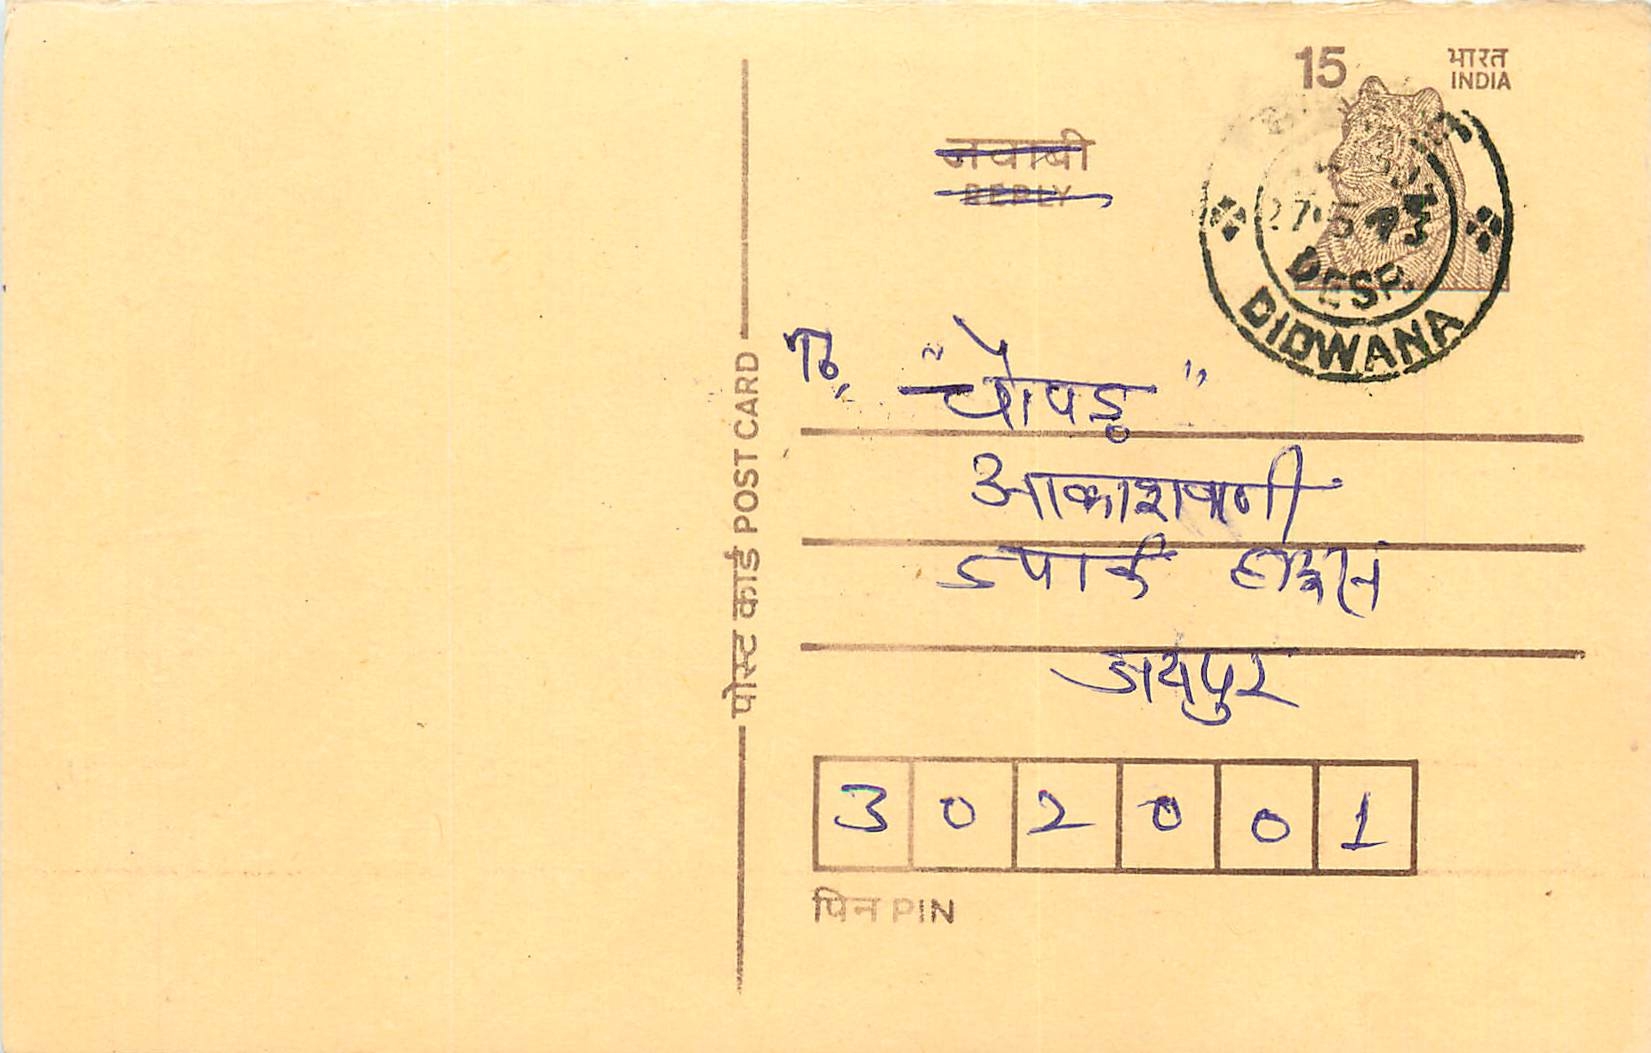 15 भारत
INDIA
जवाबी
REPLY
27·5
DESP.
DIDWANA
पोस्ट कार्ड POST CARD
To,
"चौपड़"
आकाशवाणी
जयपुर
3 0 2 0 0 1
पिन PIN